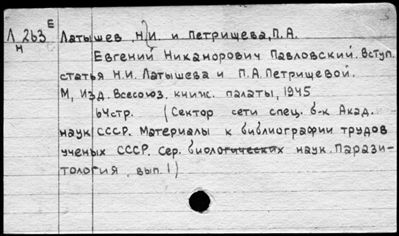 Л 263 Е Латышев, Н.И. и Петрищева, П.А.
Н
Евгений Никанорович Павловский. Вступ.
статья Н.И. Латышева и П.А. Петрищевой.
М, Изд. Всесоюз. книж. палаты, 1945
64стр. (Сектор сети спец. б-к Акад.
наук СССР. Материалы к библиографии трудов
ученых СССР. Сер. биологических наук. Парази-
тология, вып. 1)